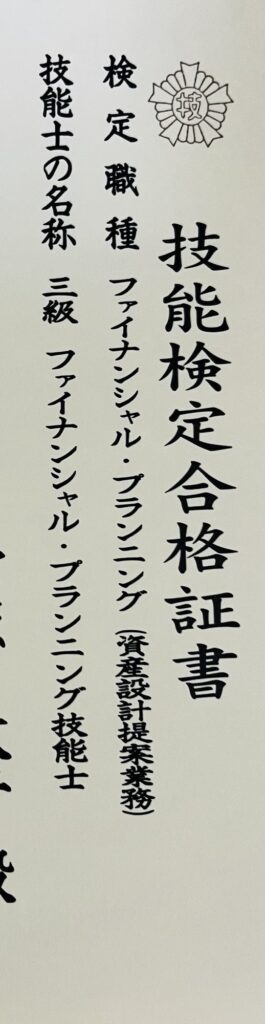 技
技能検定合格証書
検定職種 ファイナンシャル・プランニング(資産設計提案業務)
技能士の名称 三級 ファイナンシャル・プランニング技能士
殿